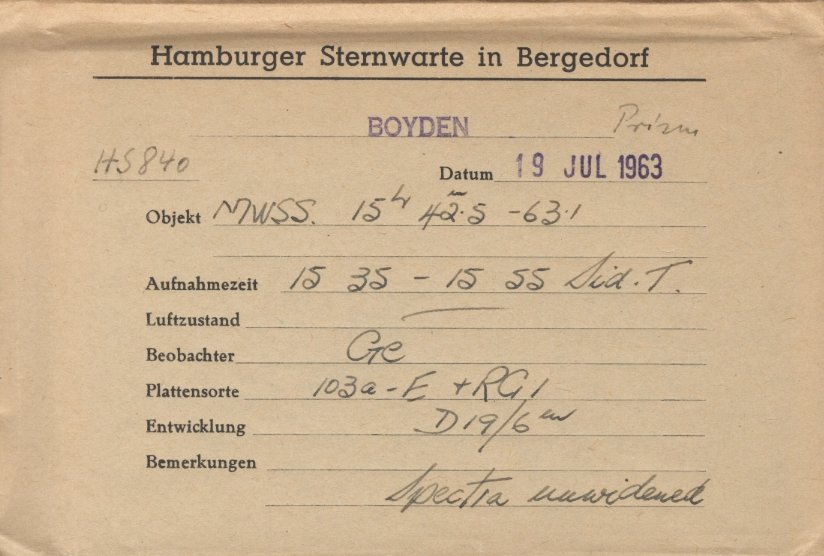 Hamburger Sternwarte in Bergedorf
BOYDEN Prism
HS840
Datum 19 JUL 1963
Objekt MWSS. 15h 42m.5 -63.1
Aufnahmezeit 15 35 - 15 55 Sid. T.
Luftzustand —
Beobachter Ge
Plattensorte 103a-E + RG1
Entwicklung D19/6m
Bemerkungen
Spectra unwidened